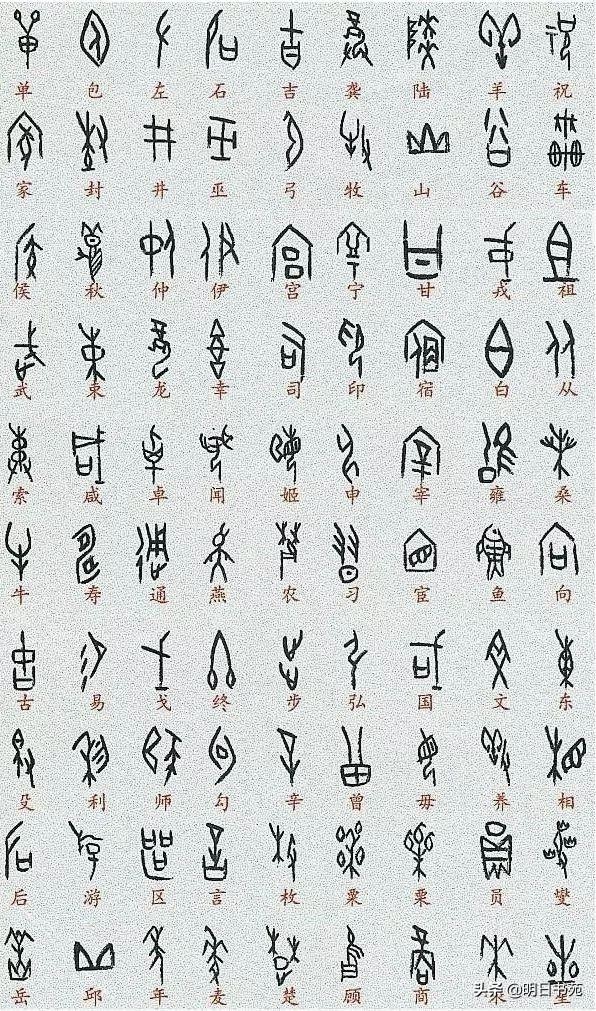 单 包 左 石 吉 龚 陆 羊 祝
家 封 井 巫 弓 牧 山 谷 车
侯 秋 仲 伊 宫 宁 甘 戎 祖
武 束 龙 幸 司 印 宿 白 从
索 咸 卓 闻 姬 申 宰 雍 桑
牛 寿 通 燕 农 习 宦 鱼 向
古 易 戈 终 步 弘 国 文 东
殳 利 师 勾 辛 曾 毋 养 相
后 游 区 言 枚 粟 栗 员 燮
岳 邱 年 麦 楚 顾 商
头条 @明日书苑